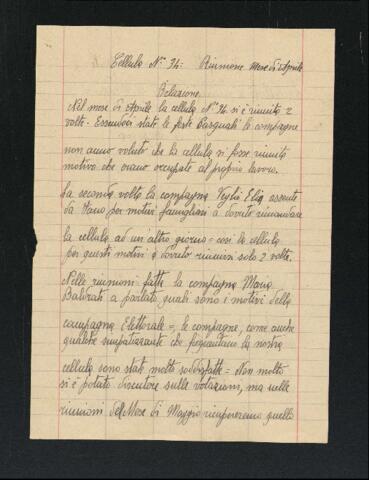 Cellula Nº 34: Riunione Mese di Aprile
Relazione
Nel mese di Aprile la cellula Nº 34 si è riunita 2
volte. Essendoci state le feste Pasquali le compagne
non anno voluto che la cellula si fosse riunita
motivo che erano occupate al proprio lavoro.
La seconda volta la compagna Veglio Elia assente
da Fano per motivi famigliari a dovuto rimandare
la cellula ad un'altro giorno = così la cellula
per questi motivi a dovuto riunirsi solo 2 volte.
Nelle riunioni fatte la compagna Maria
Baldrati a parlato quali sono i motivi della
campagna Elettorale =, le compagne, come anche
qualche simpatizzante che frequentano la nostra
cellula sono state molto soddisfatte = Non molto
si è potuto discutere sulle votazioni, ma nelle
riunioni del Mese di Maggio ricupereremo quello